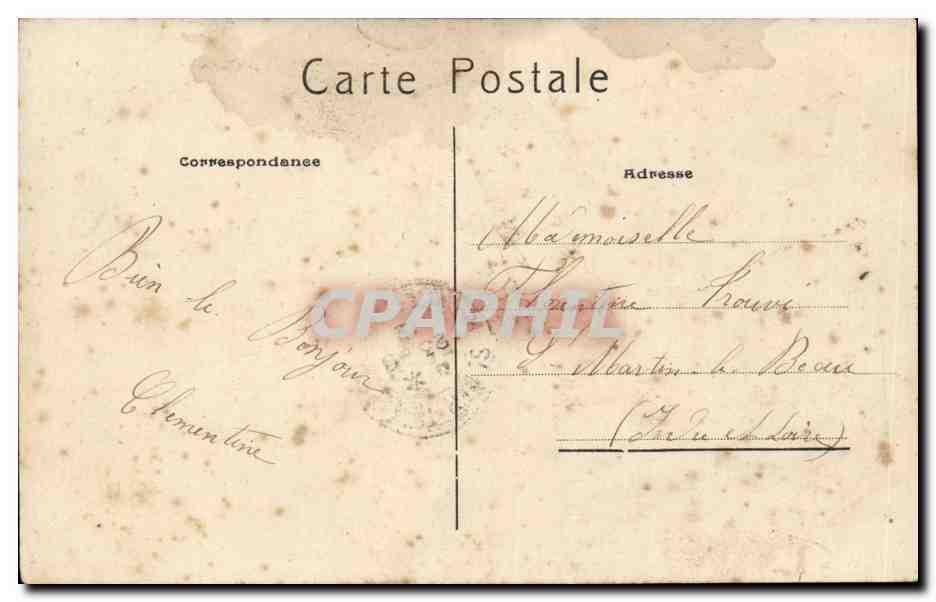 Carte Postale
Correspondance
Bien le Bonjour
Clementine
Adresse
Mademoiselle
Florentine
St Martin-le-Beau
(Indre et Loire)
CPAPHIL